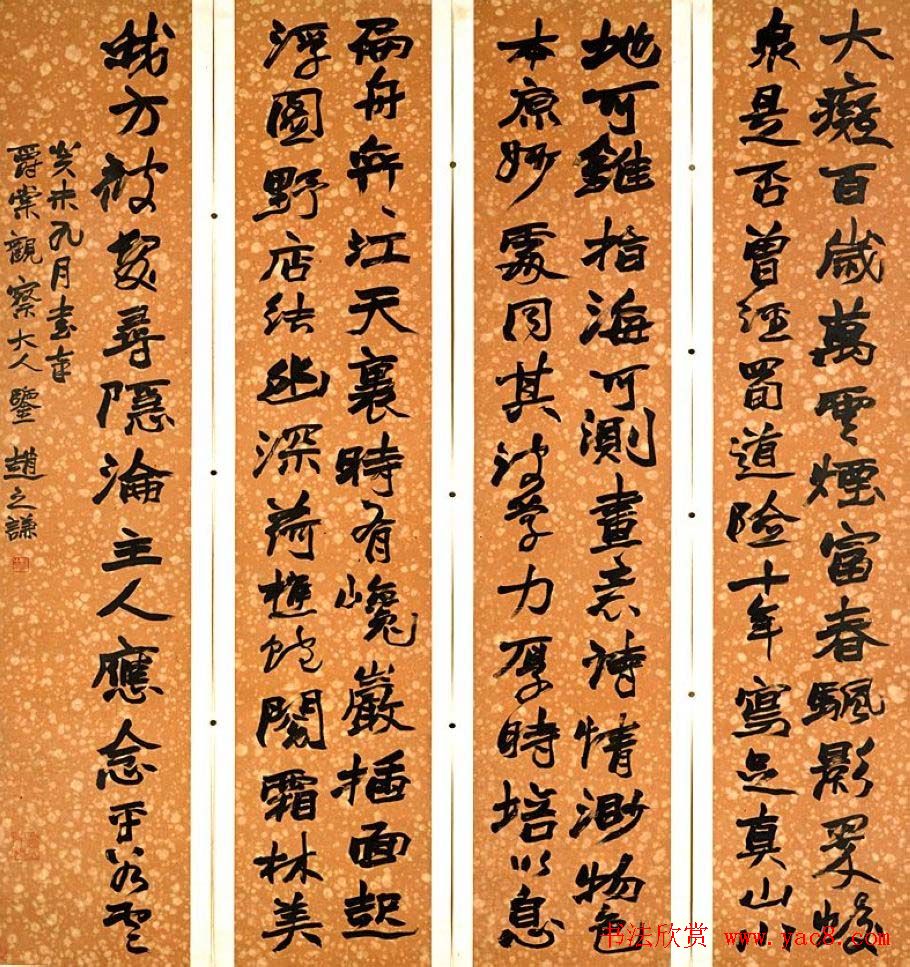 大癡百歲萬雲煙富春颿影
泉是否曾經蜀道險十年寫足真山川
地可雖指海可測畫意詩情渺物色
本原妙處同其波學力厚時培以息
舟江天裏時有巉巖插面起
浮圖野店法幽深荷樵蛇閣霜林美
我方被髮尋隱淪主人應念平
癸未九月書奉
爵棠觀察大人鑒 趙之謙
书法欣赏 www.yac8.com